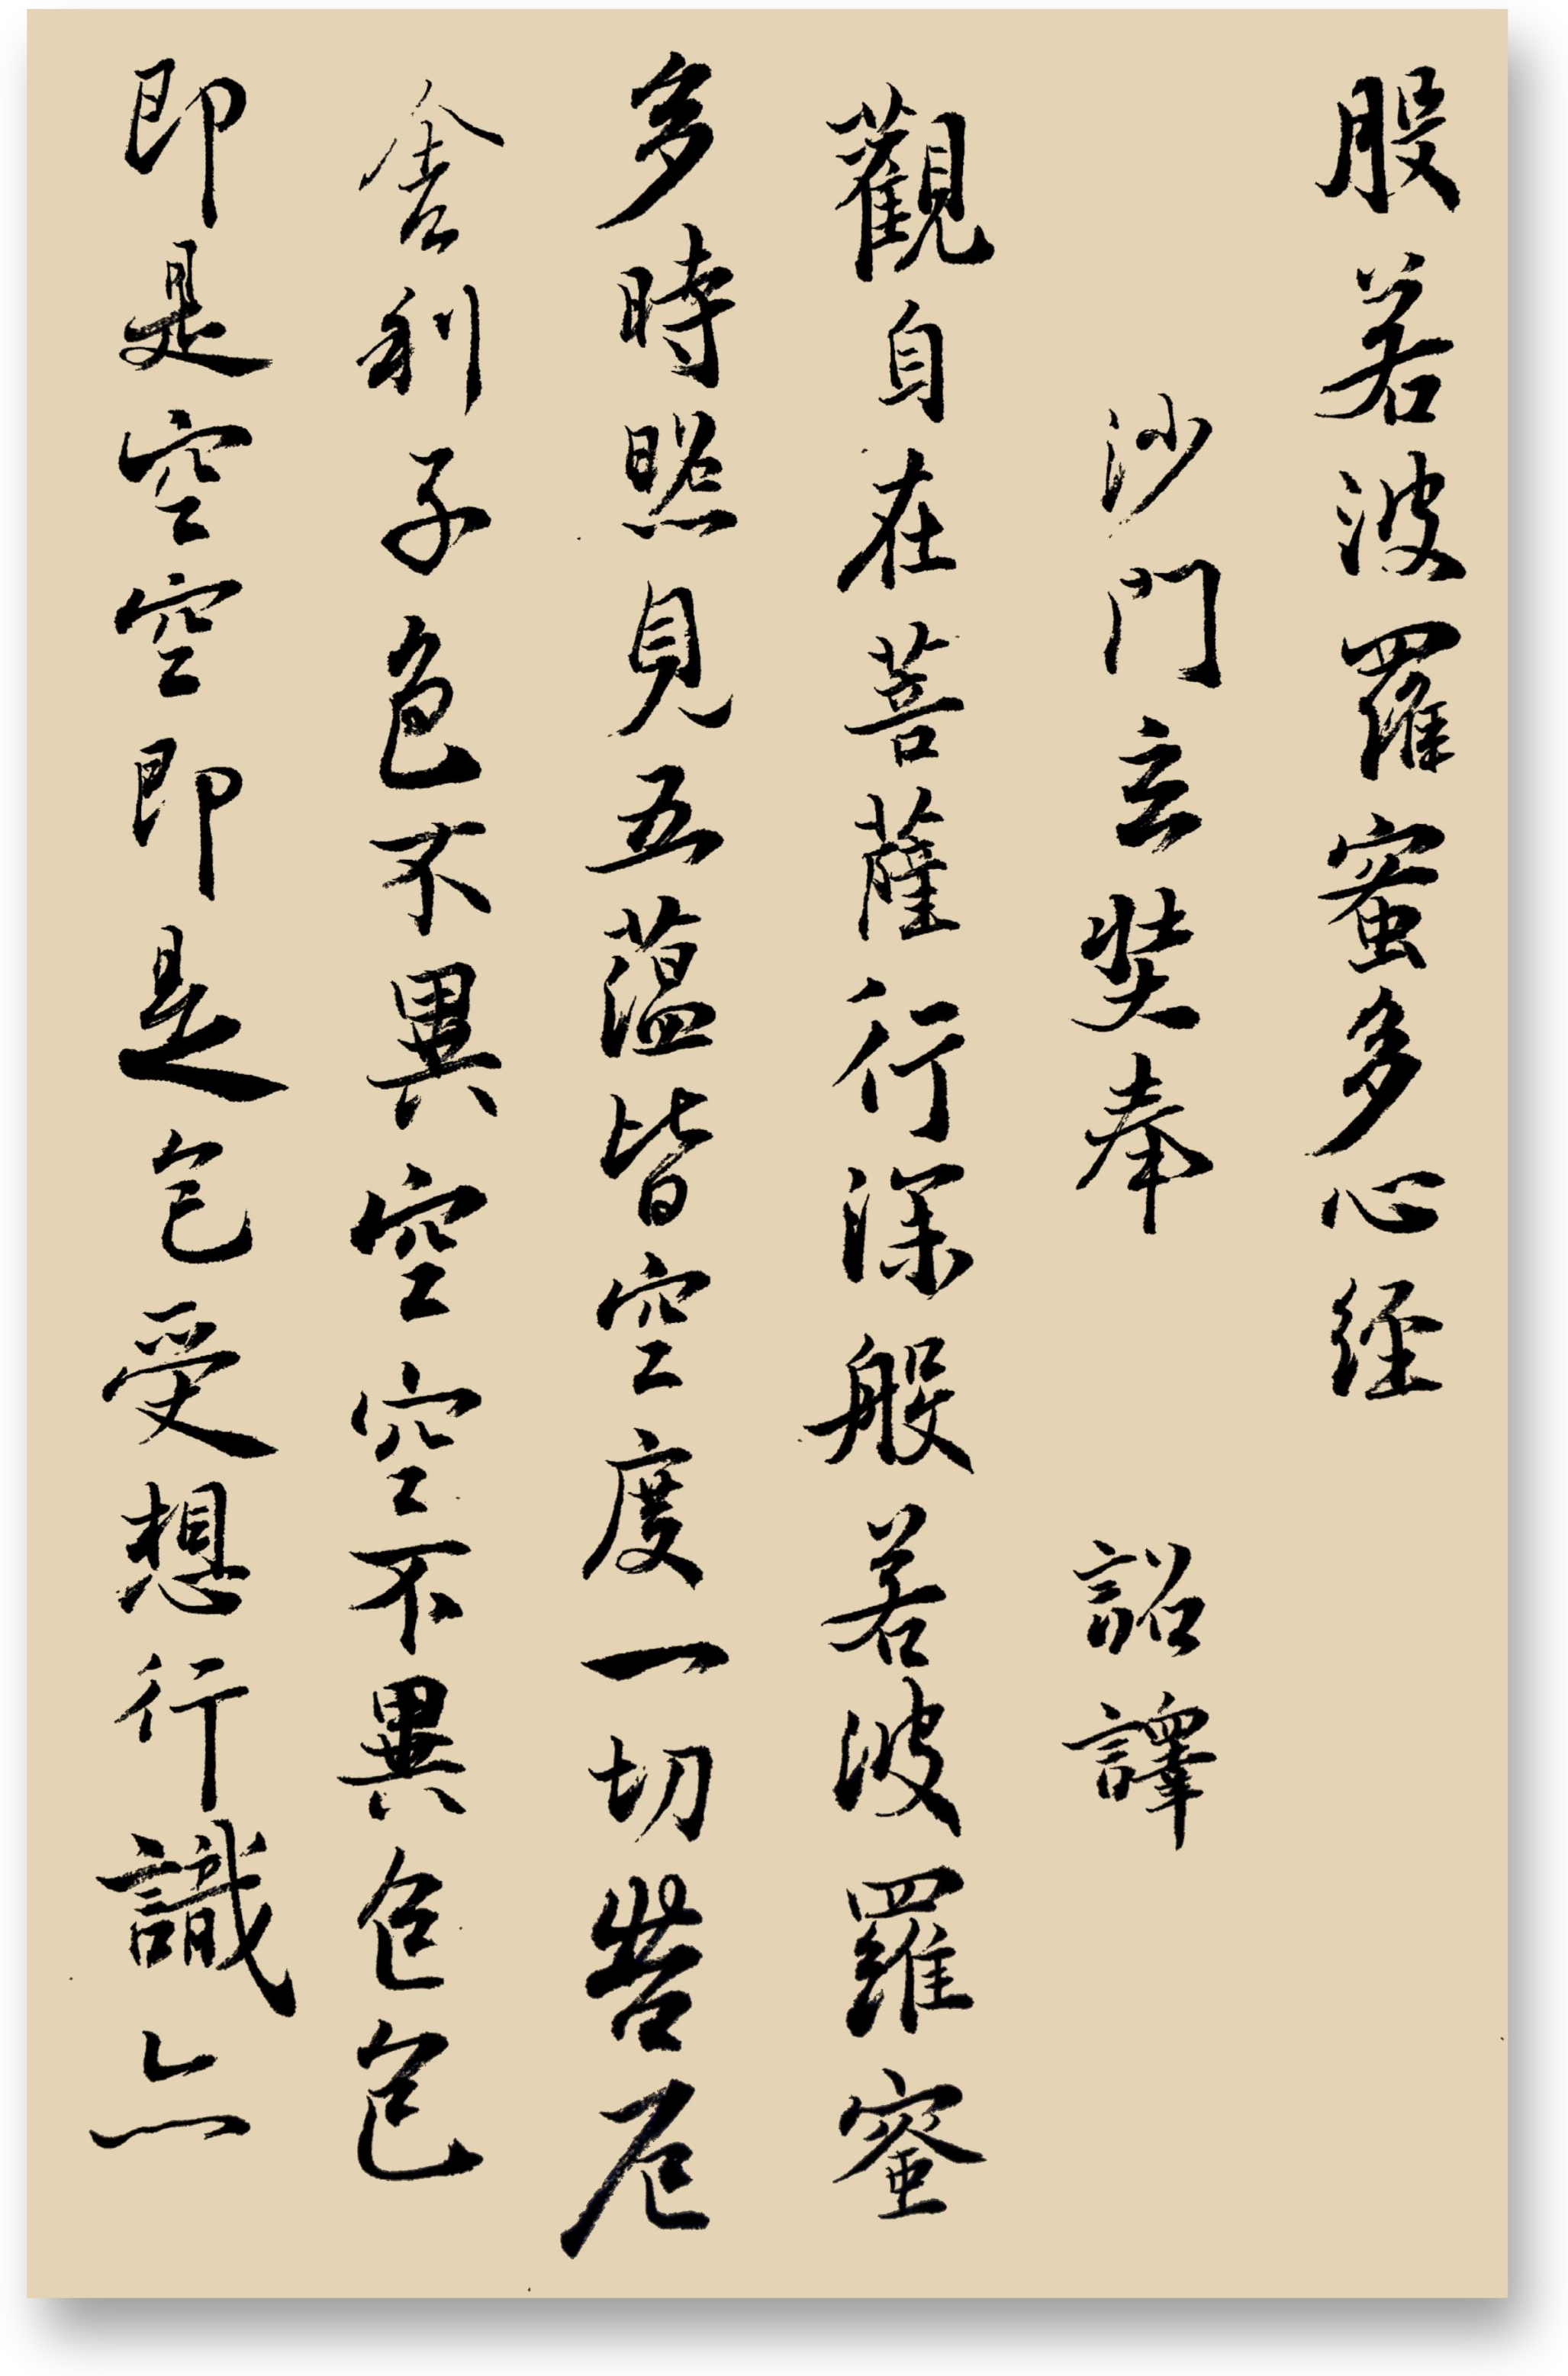 般若波羅蜜多心經
沙門玄奘奉 詔譯
觀自在菩薩行深般若波羅蜜
多時照見五蘊皆空度一切苦厄
舍利子色不異空空不異色色
即是空空即是色受想行識亦